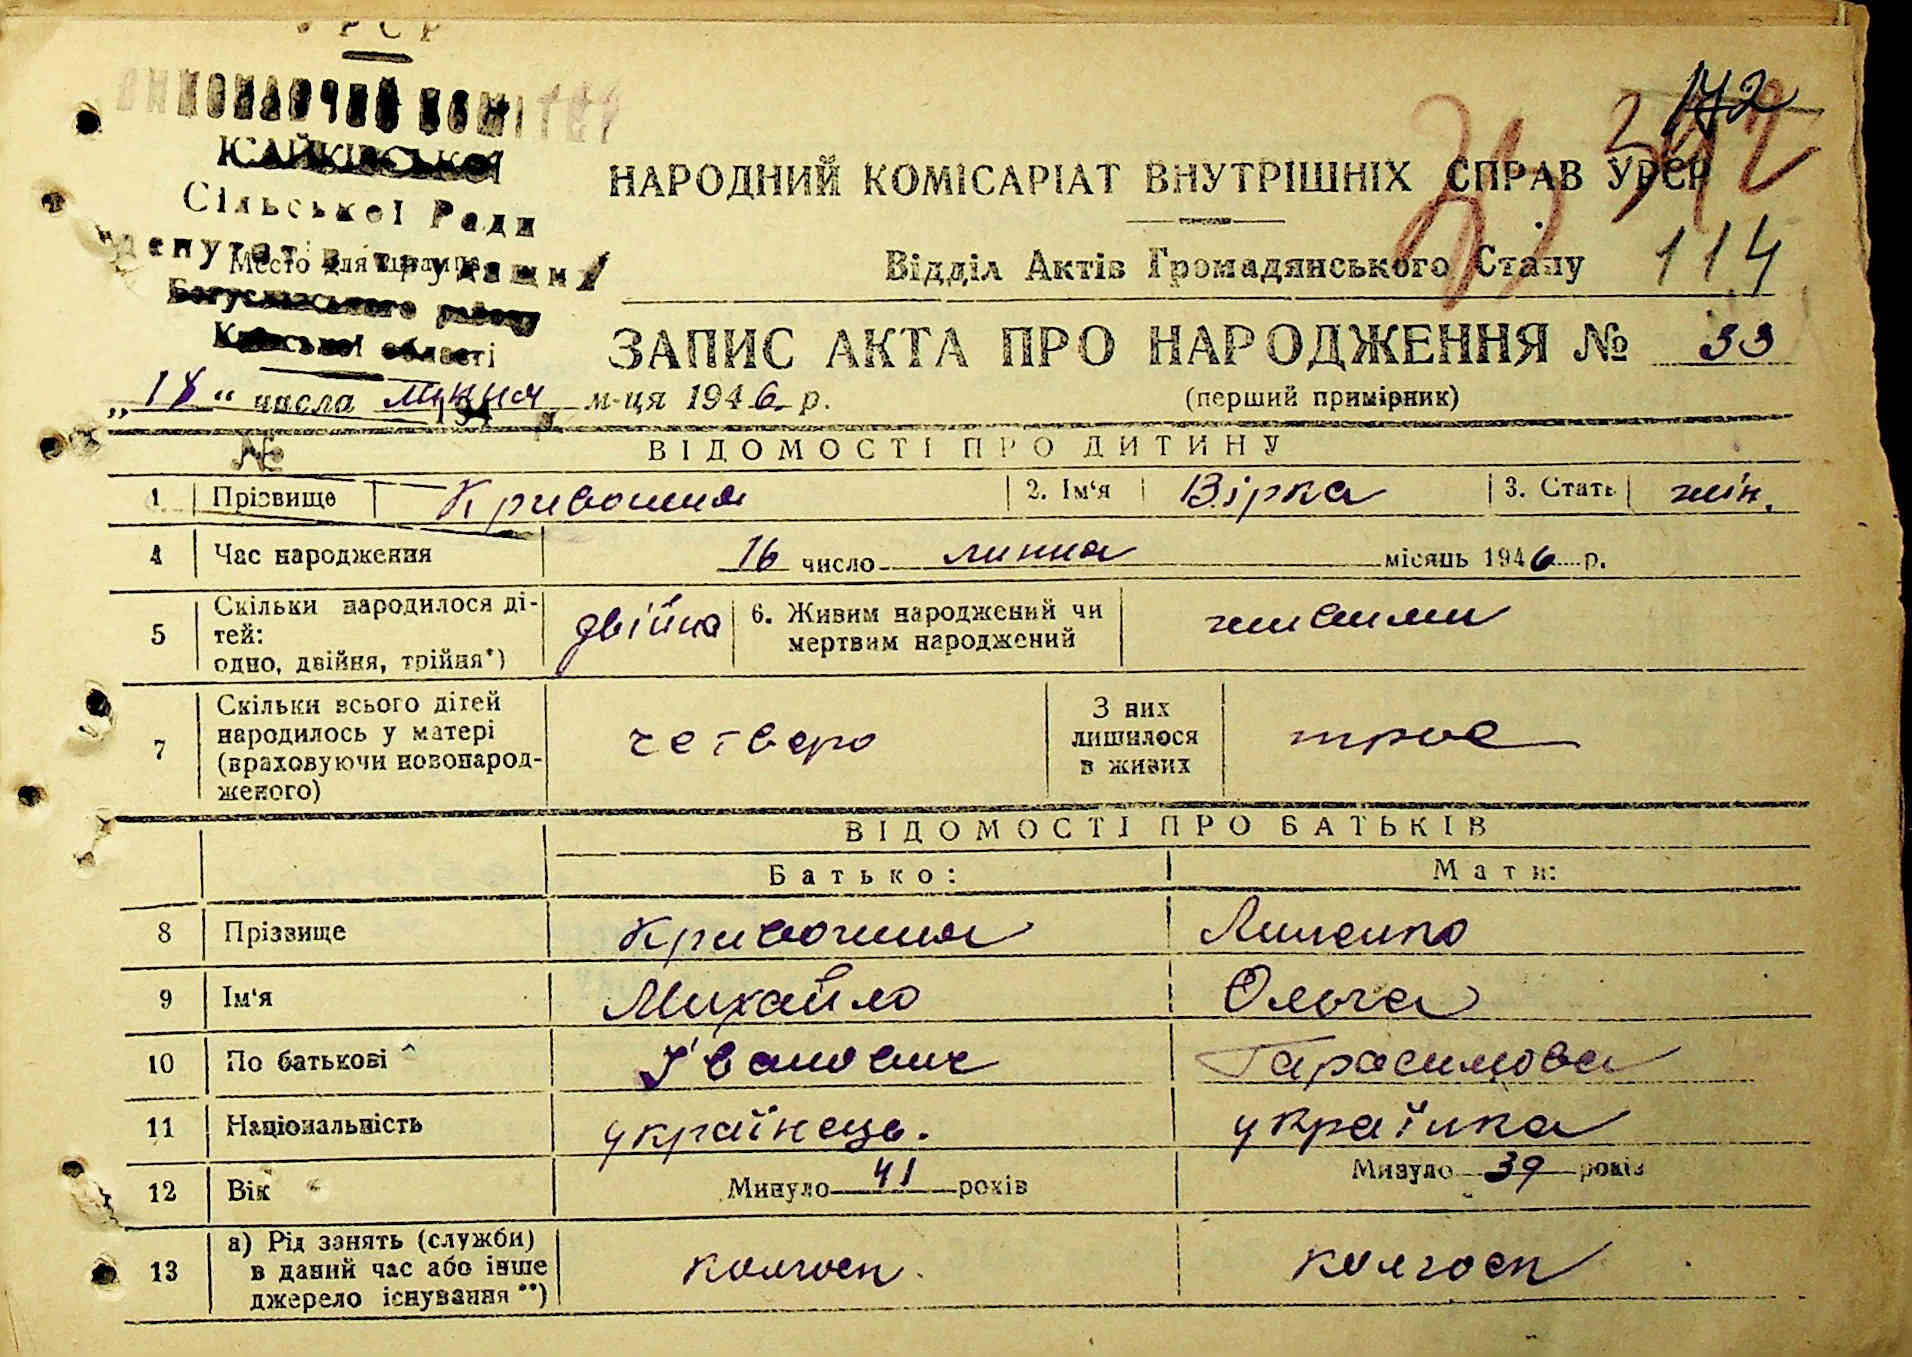 УРСР
ВИКОНАВЧИЙ КОМІТЕТ
ІСАЙКІВСЬКОЇ
Сільської Ради
депутатів трудящих
Место для штампа
Богуславського району
Київської області
№
172
342
114
НАРОДНИЙ КОМІСАРІАТ ВНУТРІШНІХ СПРАВ УРСР
Відділ Актів Громадянського Стану
ЗАПИС АКТА ПРО НАРОДЖЕННЯ № 33
„18“ числа липня м-ця 1946 р. (перший примірник)
ВІДОМОСТІ ПРО ДИТИНУ
1 Прізвище Кривошия 2. Ім'я Вірка 3. Стать жін.
4 Час народження 16 число липня місяць 1946 р.
5 Скільки народилося ді-
тей:
одно, двійня, трійня*) двійня 6. Живим народжений чи
мертвим народжений живими
7 Скільки всього дітей
народилось у матері
(враховуючи новонарод-
женого) четверо З них
лишилося
в живих троє
ВІДОМОСТІ ПРО БАТЬКІВ
Батько: Мати:
8 Прізвище Кривошия
9 Ім'я Михайло Ольга
10 По батькові Іванович Гарасимова
11 Національність українець. українка
12 Вік Минуло 41 років Минуло 39 років
13 а) Рід занять (служби)
в даний час або інше
джерело існування **) колгосп. колгосп